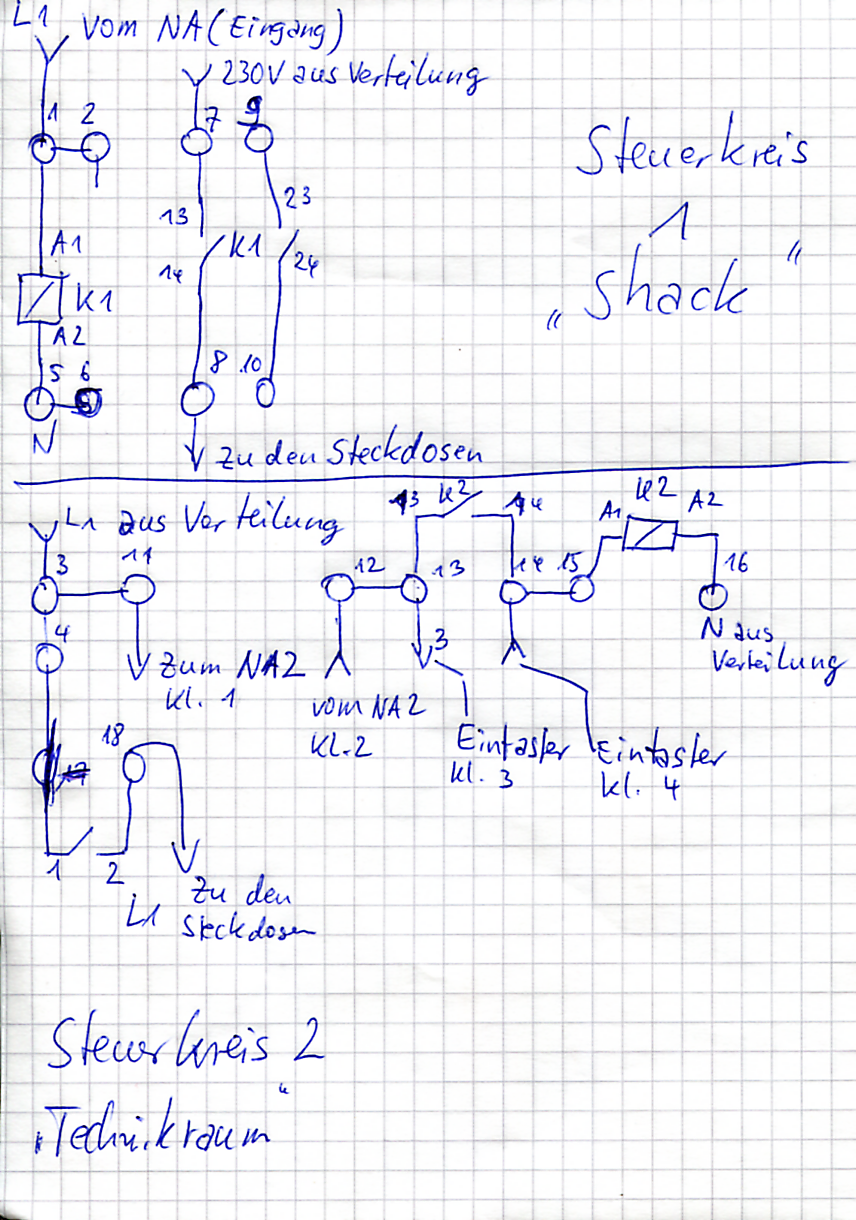 L1 Vom NA (Eingang)
230V aus Verteilung
1 2 7 9
13 23
14 K1 24
A1
K1
A2
5 6 8 10
N
zu den Steckdosen
Steuerkreis
1
"Shack"
L1 aus Verteilung
3 11
4
zum NA2
Kl. 1
18
17
1 2
L1 zu den
Steckdosen
13 K2 14
12 13 14 15
A1 K2 A2
16
N aus
Verteilung
vom NA2
Kl. 2
3
Eintaster
Kl. 3
Eintaster
Kl. 4
Steuerkreis 2
"Technikraum"